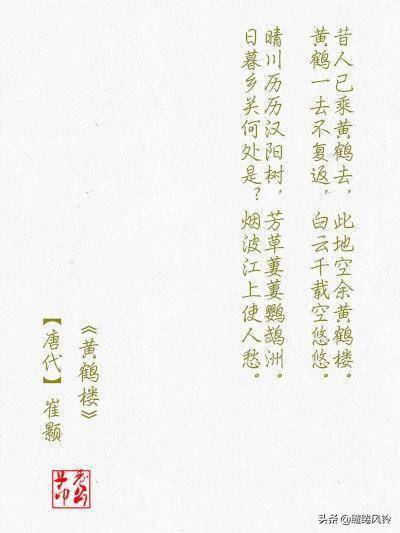 昔人已乘黄鹤去，此地空余黄鹤楼。
黄鹤一去不复返，白云千载空悠悠。
晴川历历汉阳树，芳草萋萋鹦鹉洲。
日暮乡关何处是？烟波江上使人愁。
《黄鹤楼》
【唐代】崔颢
头条 @缱绻风铃